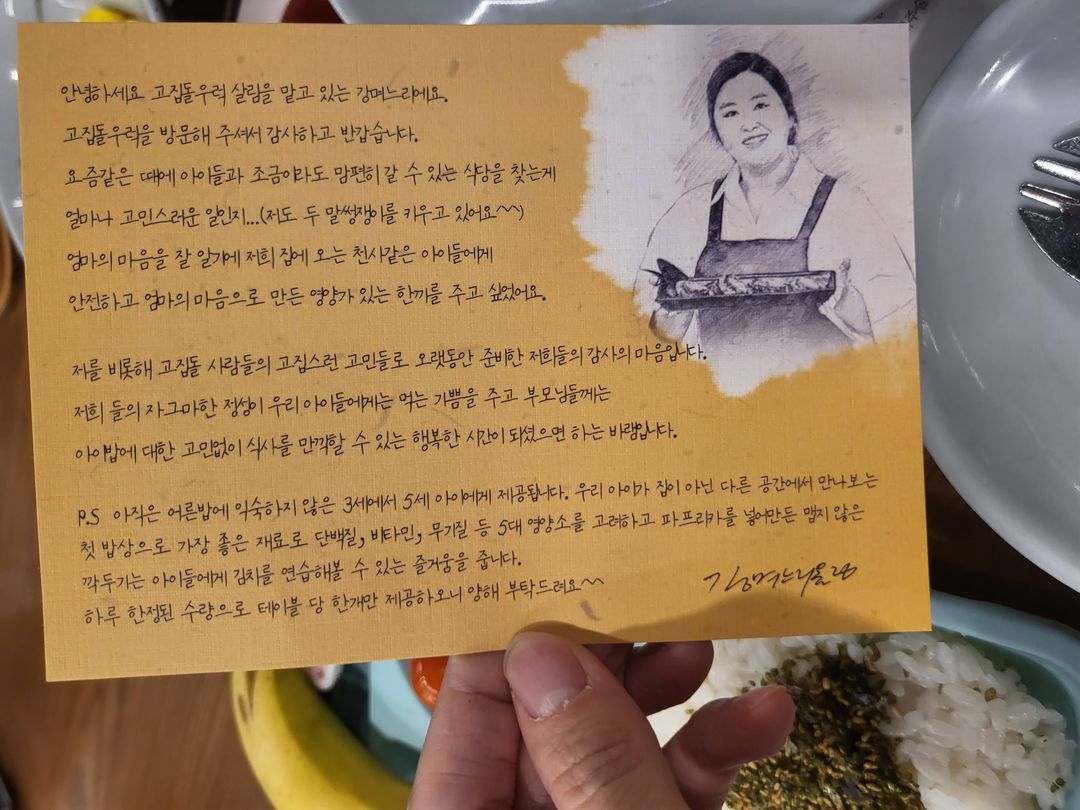 안녕하세요 고집돌우럭 살림을 맡고 있는 강며느리에요.
고집돌우럭을 방문해 주셔서 감사하고 반갑습니다.
요즘같은 때에 아이들과 조금이라도 맘편히 갈 수 있는 식당을 찾는게
얼마나 고민스러운 일인지...(저도 두 말썽쟁이를 키우고 있어요~~)
엄마의 마음을 잘 알기에 저희 집에 오는 천사같은 아이들에게
안전하고 엄마의 마음으로 만든 영양가 있는 한끼를 주고 싶었어요.
저를 비롯해 고집돌 사람들의 고집스런 고민들로 오랫동안 준비한 저희들의 감사의 마음입니다.
저희 들의 자그마한 정성이 우리 아이들에게는 먹는 기쁨을 주고 부모님들께는
아이밥에 대한 고민없이 식사를 만끽할 수 있는 행복한 시간이 되셨으면 하는 바램입니다.
P.S 아직은 어른밥에 익숙하지 않은 3세에서 5세 아이에게 제공됩니다. 우리 아이가 집이 아닌 다른 공간에서 만나보는
첫 밥상으로 가장 좋은 재료로 단백질, 비타민, 무기질 등 5대 영양소를 고려하고 파프리카를 넣어만든 맵지 않은
깍두기는 아이들에게 김치를 연습해볼 수 있는 즐거움을 줍니다.
하루 한정된 수량으로 테이블 당 한개만 제공하오니 양해 부탁드려요~~